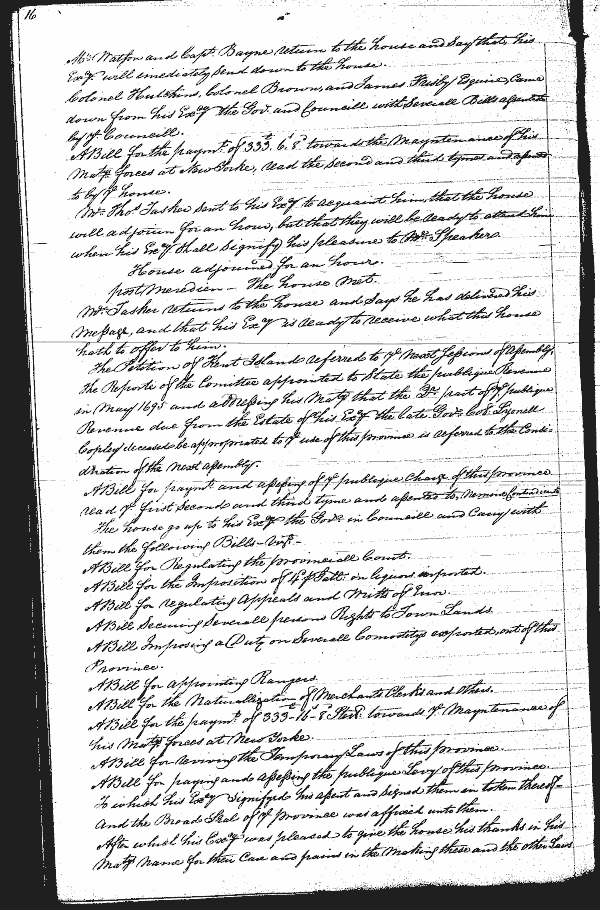 16
Mr. Watson and Capt. Bayne return to the house and Say that his
Excy. will imediately Send down to the house.
Colonel Hutchins, Colonel Browne, and James Esquire came
down from his Excy. the Govr. and Councill with Severall Bills assented
by ye Councill.
A Bill for the paymt. of 333. 6. 8. towards the Mayntenance of his
Matys. forces at New Yorke, read the Second and third tymes and assent
to by ye house.
Mr. Thos. Tasker sent to his Excy. to acquaint him, that the house
will adjourn for an hour, but that they will be ready to attend him
when his Excy. shall Signify his pleasure to Mr. Speaker.
House adjourned for an hour.
post Meredien - The house met.
Mr. Tasker returns to the house and Says he has delivered his
Message, and that his Excy. is ready to receive what this house
hath to offer to him.
The Petition of Kent Island referred to ye Next Sessions of Assembly.
The Reporte of the Comittee appointed to State the publique Revenue
in May 1695 and addressing his Maty. that the 3d. part of ye publique
Revenue due from the Estate of his Excy. the late Govr. Col. Lyonell
Copley deceased be appropriated to ye use of this province is referred to the Consi-
deration of the Next assembly.
A Bill for paymt. and assessing of ye publique Charge of this province
read ye first Second and third tyme and assented to, Nemine Contradicente
The house go up to his Excy. the Govr. in Councill and Carry with
them the following Bills - Vizt. -
A Bill for Regulating the provinciall Court.
A Bill for the Imposition of 4d. p Gall. on liquors imported.
A Bill for regulating Appeals and Writts of Error.
A Bill Securing Severall persons Rights to Town Lands.
A Bill Imposing a Duty on Severall Comoditys exported out of this
Province.
A Bill for appointing Rangers.
A Bill for the Naturallization of Merchants Clerks and others.
A Bill for the paymt. of 333-16-8 Sterl. towards ye Mayntenance of
his Matys. forces at New Yorke.
A Bill for reviving the Temporary Laws of this province.
A Bill for paying and assessing the publique Levy of this province.
To which his Excy. Signifyed his assent and Signed them in totem thereof -
And the Broad Seal of ye province was affixed unto them.
After which his Excy. was pleased to give the house his thanks in his
Matys. Name for their Care and pains in the making these and the other Laws